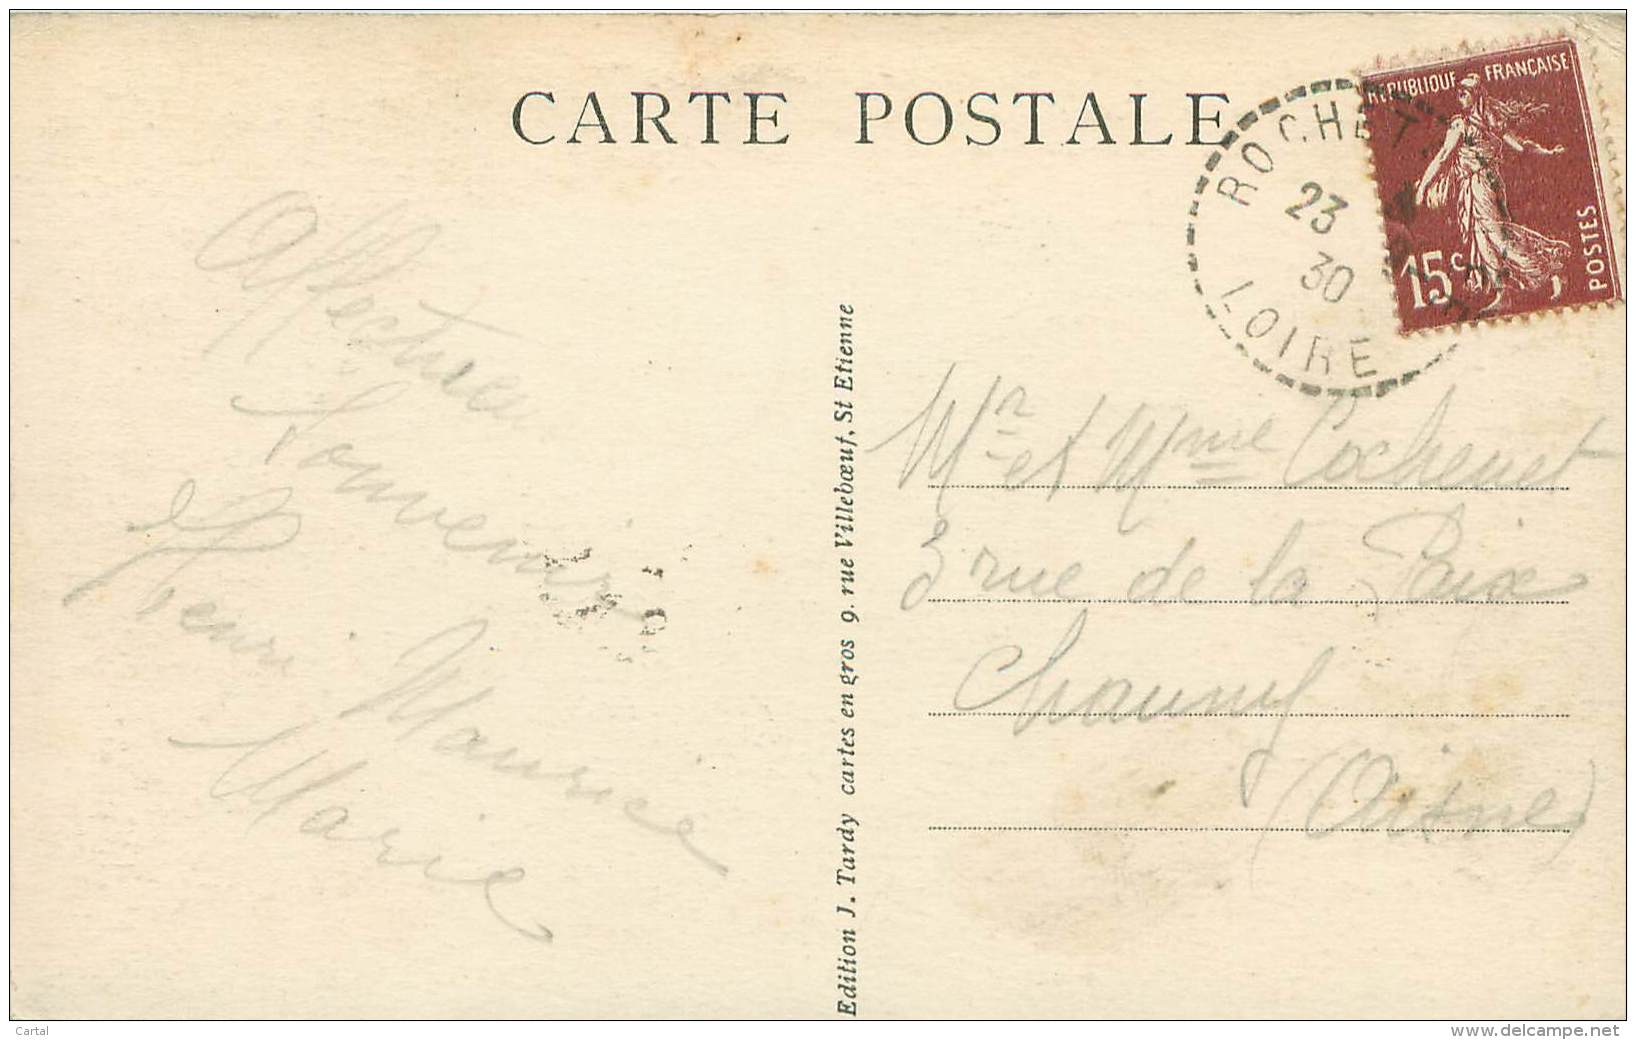 CARTE POSTALE
REPUBLIQUE FRANÇAISE
15c
POSTES
ROCHET
23
30
LOIRE
Affectueux
Souvenirs
Henri Maurice
Marie
Edition J. Tardy cartes en gros 9, rue Villebœuf, St Etienne
Mr et Mme Cochenet
3 rue de la Paix
Chauny
(Aisne)
Cartal
www.delcampe.net